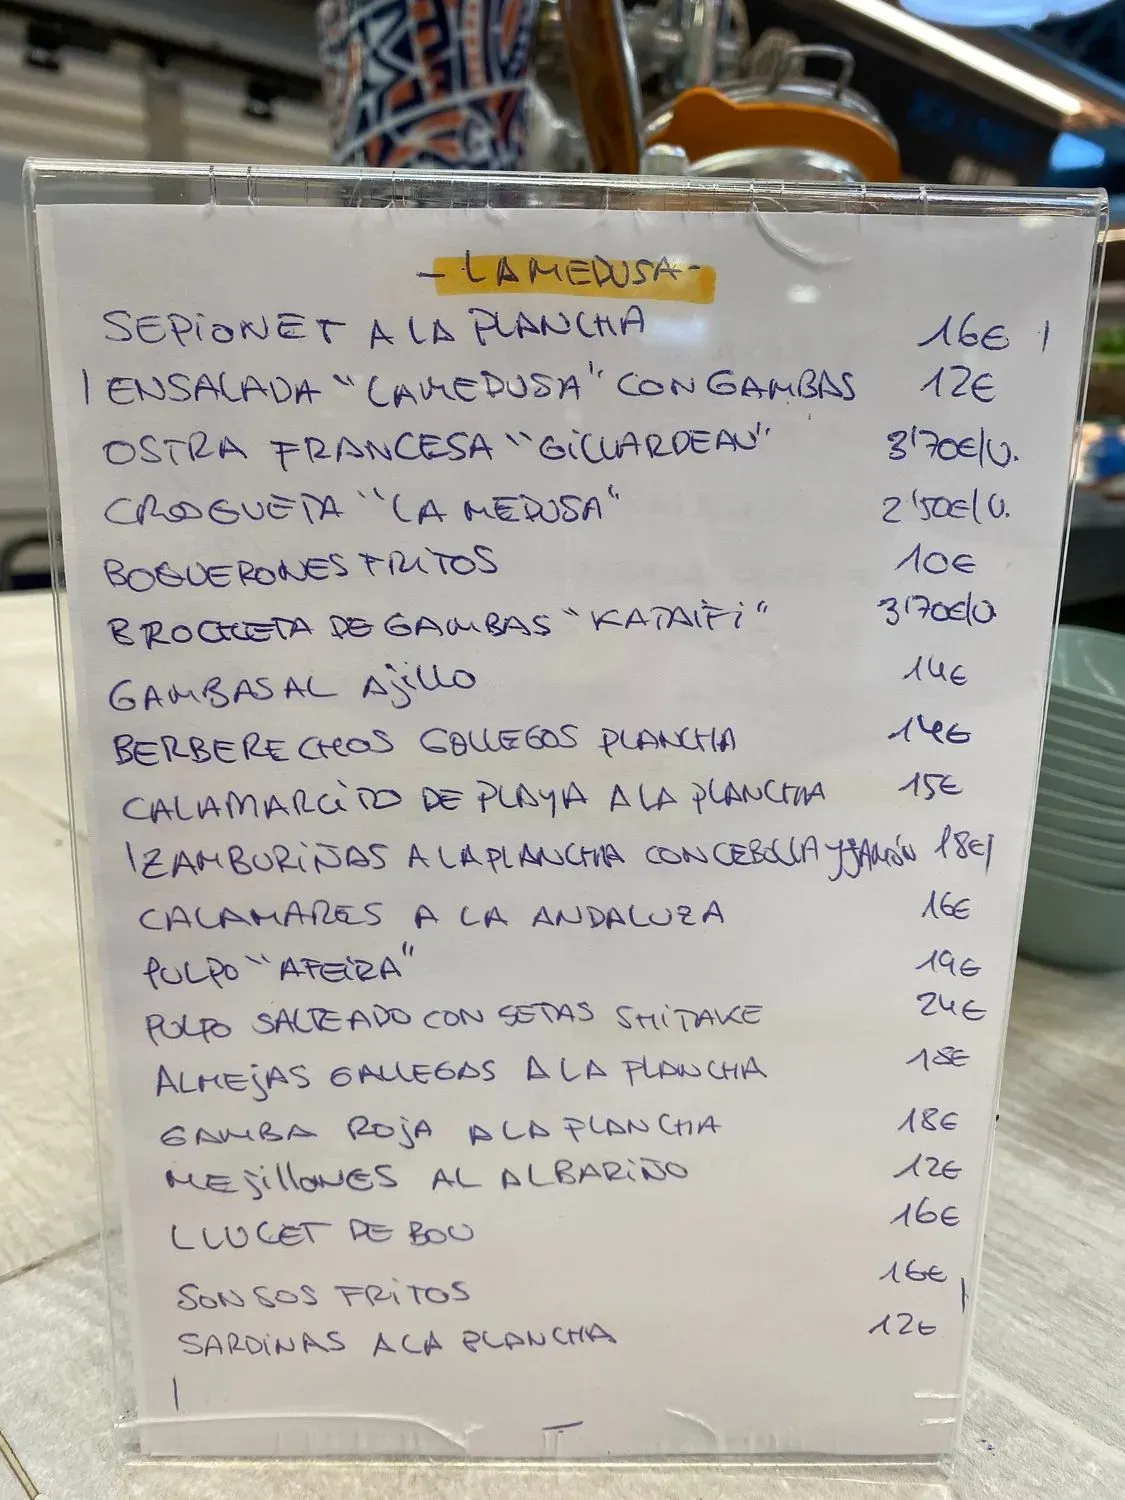 - LA MEDUSA -
SEPiONET A LA PLANCHA 16€
ENSALADA "LA MEDUSA" CON GAMBAS 12€
OSTRA FRANCESA "GiLLARDEAU" 3'70€/U.
CROQUETA "LA MEDUSA" 2'50€/U.
BOQUERONES FRiTOS 10€
BROCHETA DE GAMBAS "KATAiFi" 3'70€/U
GAMBAS AL AjiLLO 14€
BERBERECHOS GALLEGOS PLANCHA 14€
CALAMARCiTO DE PLAYA A LA PLANCHA 15€
ZAMBURiÑAS A LA PLANCHA CON CEBOLLA Y JAMÓN 18€
CALAMARES A LA ANDALUZA 16€
PULPO "AFEiRA" 19€
PULPO SALTEADO CON SETAS SHITAKE 24€
ALMEjAS GALLEGAS A LA PLANCHA 18€
GAMBA ROjA A LA PLANCHA 18€
MEjiLLONES AL ALBARiÑO 12€
LLUCET DE BOU 16€
SONSOS FRiTOS 16€
SARDiNAS A LA PLANCHA 12€